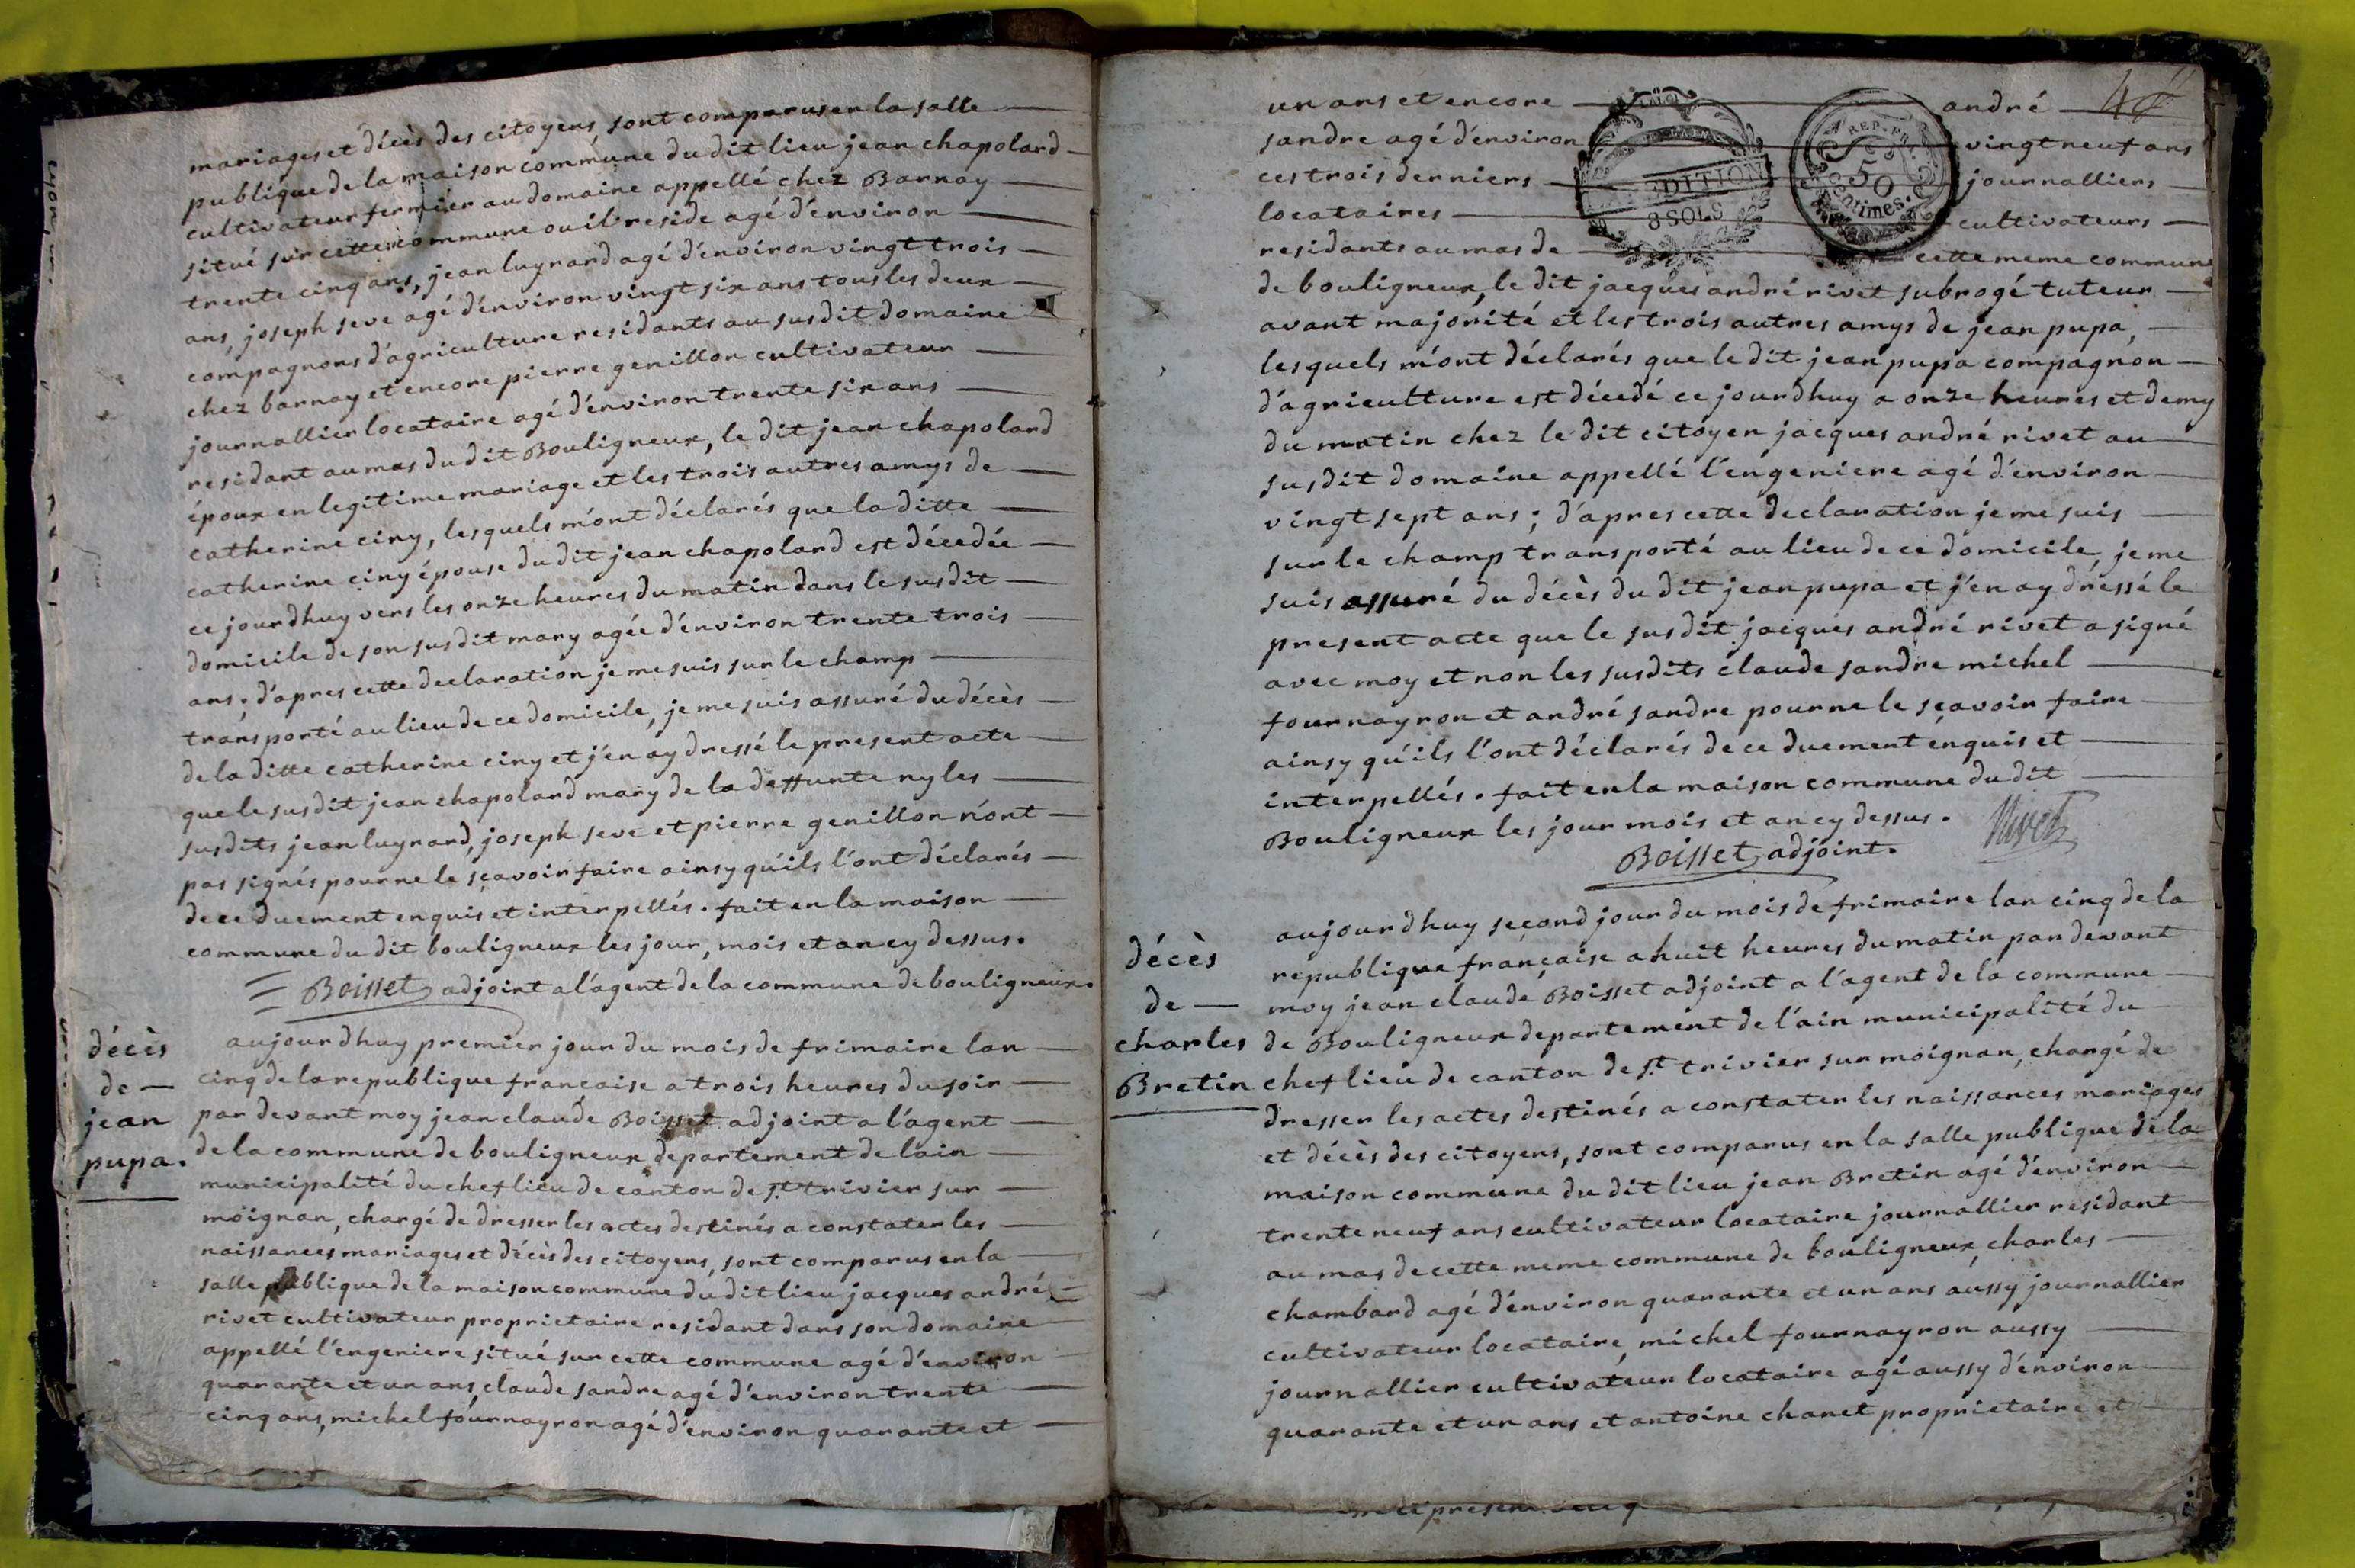 mariages et décès des citoyens, sont comparus en la salle
publique de la maison commune du dit lieu jean chapolard
cultivateur fermier au domaine appellé chez Barnay
situé sur cette commune ou il reside agé d'environ
trente cinq ans, jean luynard agé d'environ vingt trois
ans, joseph seve agé d'environ vingt six ans tous les deux
compagnons d'agriculture residants au susdit domaine
chez barnay et encore pierre genillon cultivateur
journallier locataire agé d'environ trente six ans
residant au mas du dit Bouligneux, le dit jean chapolard
époux en legitime mariage et les trois autres amys de
catherine ciny, lesquels m'ont déclarés que la ditte
catherine ciny épouse du dit jean chapolard est décedée
ce jourdhuy vers les onze heures du matin dans le susdit
domicile de son susdit mary agée d'environ trente trois
ans; d'apres cette declaration je me suis sur le champ
transporté au lieu de ce domicile, je me suis assuré du décès
de la ditte catherine ciny et j'en ay dressé le present acte
que le susdit jean chapolard mary de la deffunte ny les
susdits jean luynard, joseph seve et pierre genillon n'ont
pas signés pour ne le sçavoir faire ainsy qu'ils l'ont déclarés
de ce duement enquis et interpellés. fait en la maison
commune du dit bouligneux les jour, mois et an cy dessus.
Boisset adjoint a l'agent de la commune de bouligneux.
décès
de
jean
pupa.
aujourdhuy premier jour du mois de frimaire lan
cinq de la republique française a trois heures du soir
par devant moy jean claude Boisset adjoint a l'agent
de la commune de bouligneux departement de lain
municipalité du chef lieu de canton de st trivier sur
moignan, chargé de dresser les actes destinés a constater les
naissances mariages et décès des citoyens, sont comparus en la
salle publique de la maison commune du dit lieu jacques andré
rivet cultivateur proprietaire residant dans son domaine
appellé l'engeniere situé sur cette commune agé d'environ
quarante et un ans, claude sandre agé d'environ trente
cinq ans, michel fournayron agé d'environ quarante et
un ans et encore andré
sandre agé d'environ vingt neuf ans
ces trois derniers journalliers
locataires cultivateurs
residants au mas de cette meme commune
EXPEDITION
8 SOLS
REP. FR.
50
Centimes.
de bouligneux, le dit jacques andré rivet subrogé tuteur
avant majorité et les trois autres amys de jean pupa,
lesquels m'ont déclarés que le dit jean pupa compagnon
d'agriculture est décedé ce jourdhuy a onze heures et demy
du matin chez le dit citoyen jacques andré rivet au
susdit domaine appellé l'engeniere agé d'environ
vingt sept ans; d'apres cette declaration je me suis
sur le champ transporté au lieu de ce domicile, je me
suis assuré du décès du dit jean pupa et j'en ay dressé le
present acte que le susdit jacques andré rivet a signé
avec moy et non les susdits claude sandre michel
fournayron et andré sandre pour ne le sçavoir faire
ainsy qu'ils l'ont déclarés de ce duement enquis et
interpellés. fait en la maison commune du dit
Bouligneux les jour mois et an cy dessus.
Rivet
Boisset adjoint.
décès
de
charles
Bretin
aujourdhuy second jour du mois de frimaire lan cinq de la
republique française a huit heures du matin par devant
moy jean claude Boisset adjoint a l'agent de la commune
de Bouligneux departement de l'ain municipalité du
chef lieu de canton de st trivier sur moignan, chargé de
dresser les actes destinés a constater les naissances mariages
et décès des citoyens, sont comparus en la salle publique de la
maison commune du dit lieu jean Bretin agé d'environ
trente neuf ans cultivateur locataire journallier residant
au mas de cette meme commune de bouligneux, charles
chambard agé d'environ quarante et un ans aussy journallier
cultivateur locataire, michel fournayron aussy
journallier cultivateur locataire agé aussy d'environ
quarante et un ans et antoine chanet proprietaire et